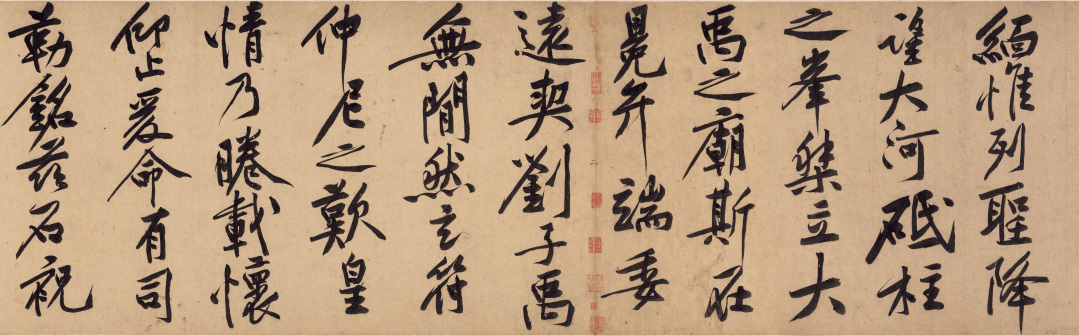 緬惟列聖降
望大河砥柱
之峯桀立大
禹之廟斯在
冕弁端委
遠契劉子禹
無閒然玄符
仲尼之歎皇
情乃睠載懷
仰止爰命有司
勒銘茲石祝